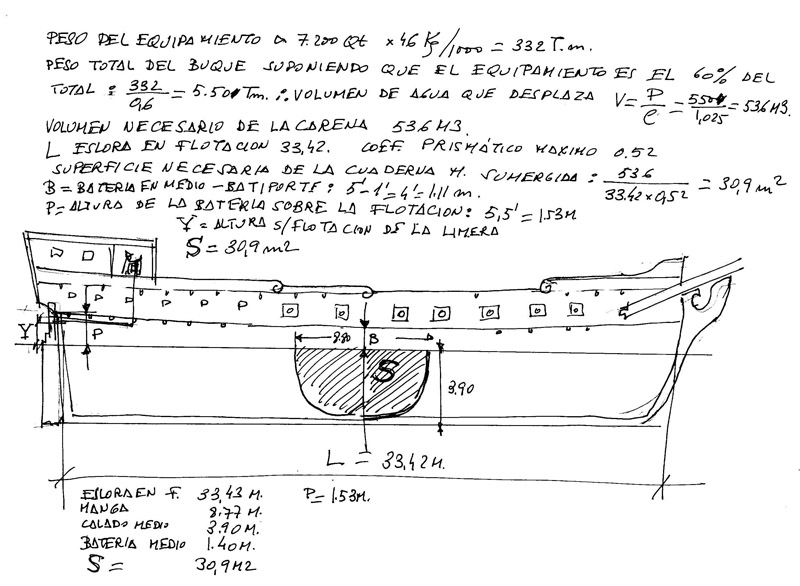 PESO DEL EQUIPAMIENTO 7.200 Qt × 46 Kg/1000 = 332 T.m.
PESO TOTAL DEL BUQUE SUPONIENDO QUE EL EQUIPAMIENTO ES EL 60% DEL
TOTAL : 332/0,6 = 5.501 Tm. ∴ VOLUMEN DE AGUA QUE DESPLAZA V = P/ρ = 5501/1,025 = 536 M3.
VOLUMEN NECESARIO DE LA CARENA 536 M3.
L ESLORA EN FLOTACION 33,42. COEFF PRISMÁTICO MAXIMO 0.52
SUPERFICIE NECESARIA DE LA CUADERNA M. SUMERGIDA : 536/33.42 x 0,52 = 30,9 m2
B = BATERIA EN MEDIO - BATIPORTE : 5'-1' = 4' = 1.11 m.
P = ALTURA DE LA BATERIA SOBRE LA FLOTACION : 5,5' = 1.53 M
Y = ALTURA S/FLOTACION DE LA LIMERA
S = 30,9 m2
Y
P
8.80
B
S
3.90
L = 33,42 M.
ESLORA EN F. 33,43 M. P = 1.53 M.
MANGA 8.77 M.
CALADO MEDIO 3.90 M.
BATERIA MEDIO 1.40 M.
S = 30,9 M2